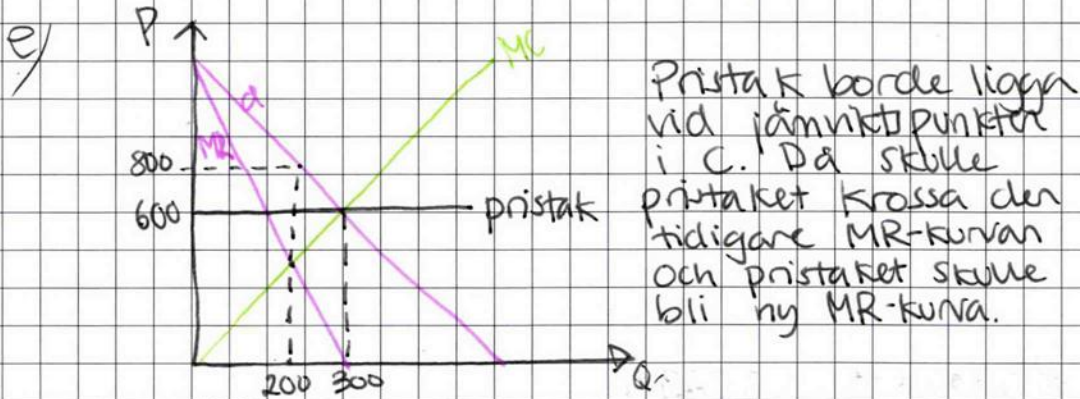 e)
P
MC
d
MR
800
600
pristak
200 300
Q
Pristak borde ligga
vid jämviktspunkten
i C. Då skulle
pristaket krossa den
tidigare MR-kurvan
och pristaket skulle
bli ny MR-kurva.